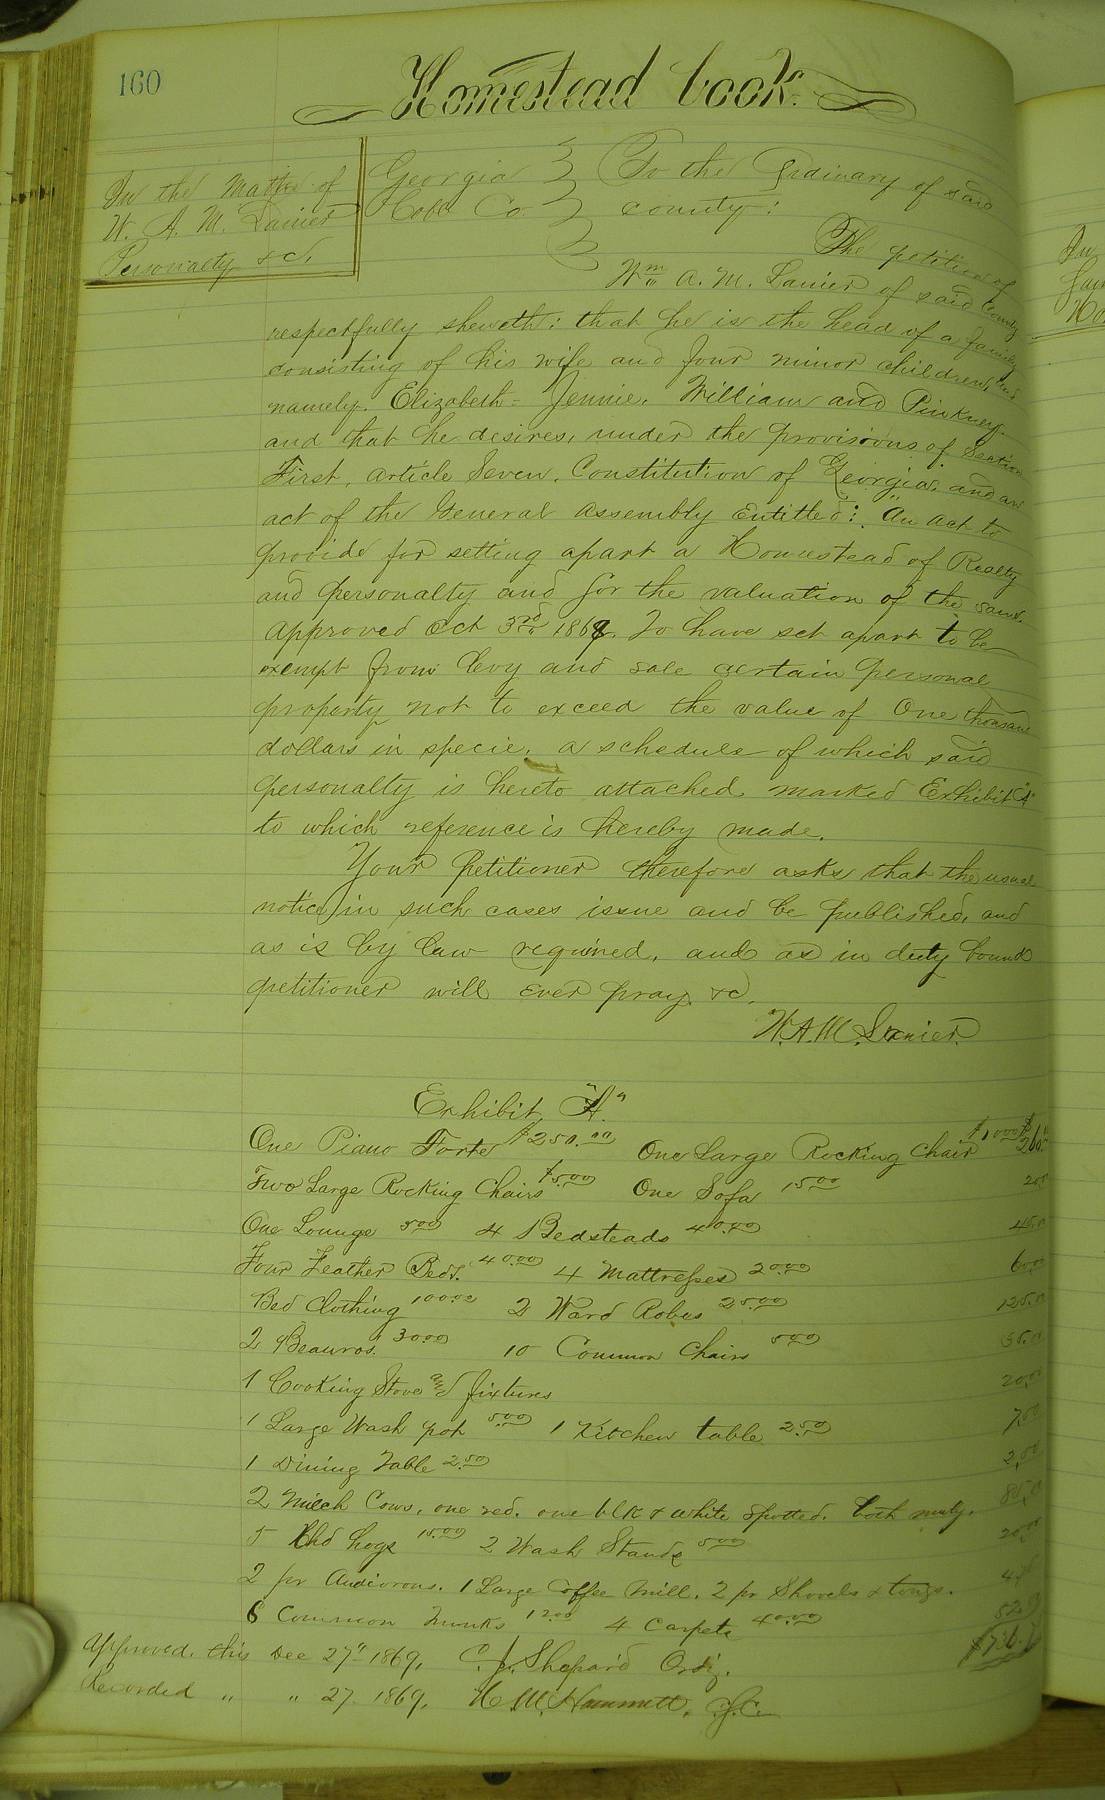 160
Homestead book.
In the Matter of
W. A. M. Lanier
Personalty &c.
Georgia
Cobb Co.
To the Ordinary of said
county:
The petition of
Wm A. M. Lanier of said County
respectfully sheweth: that he is the head of a family
consisting of his wife and four minor children,
namely. Elizabeth - Jennie. William and Pinkney.
and that he desires, under the provisions of Section
First, article Seven. Constitution of Georgia. and an
act of the General assembly Entitled: "An act to
provide for setting apart a Homestead of Realty
and personalty and for the valuation of the same.
approved Oct 3rd 1868. To have set apart to be
exempt from levy and sale certain personal
property not to exceed the value of One thousand
dollars in specie. a schedule of which said
personalty is hereto attached. marked Exhibit "A"
to which reference is hereby made.
Your petitioner therefore asks that the usual
notice in such cases issue and be published, and
as is by law required, and as in duty bound
petitioner will ever pray &c.
W. A. M. Lanier.
Exhibit "A"
One Piano Forte $250.00 One Large Rocking Chair $10.00 $260.00
Two Large Rocking Chairs $5.00 One Sofa 15.00 20.00
One Lounge 5.00 4 Bedsteads 40.00 45.00
Four Feather Beds. 40.00 4 Mattresses 20.00 60.00
Bed Clothing 100.00 2 Ward Robes 25.00 125.00
2 Beauros. 30.00 10 Common Chairs 5.00 35.00
1 Cooking Stove and fixtures 20.00
1 Large Wash pot 5.00 1 Kitchen table 2.50 7.50
1 Dining Table 2.50 2.50
2 Milch Cows, one red. one blk & white spotted. both muly.
5 Shd hogs 15.00 2 Wash Stands 5.00 20.00
2 pr Andirons. 1 Large Coffee Mill. 2 pr Shovels & tongs.
6 Common Trunks 12.00 4 Carpets 40.00 52.00
Approved. this Dec 27" 1869. C. J. Shepard Ordy.
Recorded " " 27. 1869. H. M. Hammett.